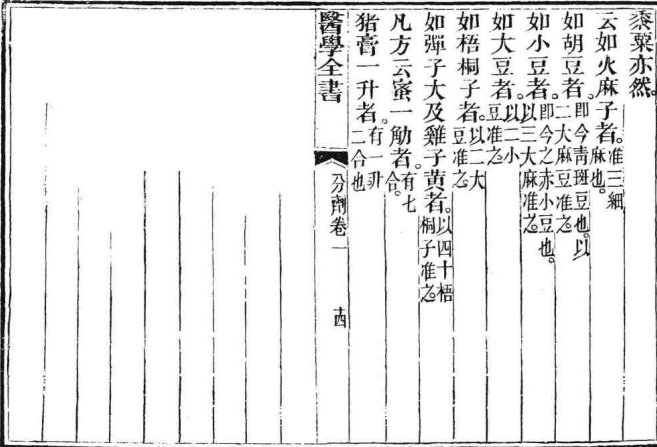 黍粟亦然。
云如火麻子者。准三細麻也。
如胡豆者。即今靑斑豆也。以二大麻豆准之。
如小豆者。即今之赤小豆也。以三大麻准之。
如大豆者。以二小豆准之。
如梧桐子者。以二大豆准之。
如彈子大及雞子黄者。以四十梧桐子准之。
凡方云蜜一觔者。有七合。
猪膏一升者。有一升二合也
醫學全書
分劑卷一
十四